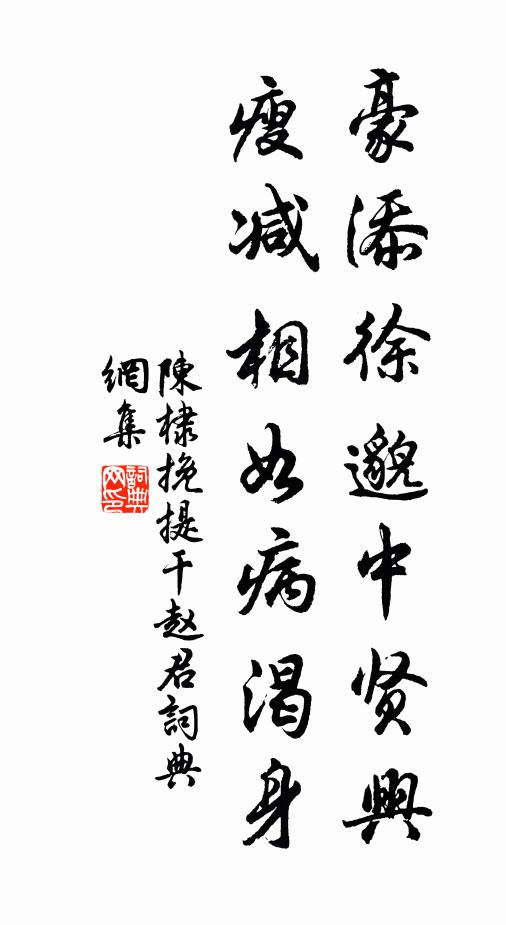 豪添徐邈中贤興
瘦减相如病渴身
陳棣挽提干赵君詞典
網集
詞典
网印